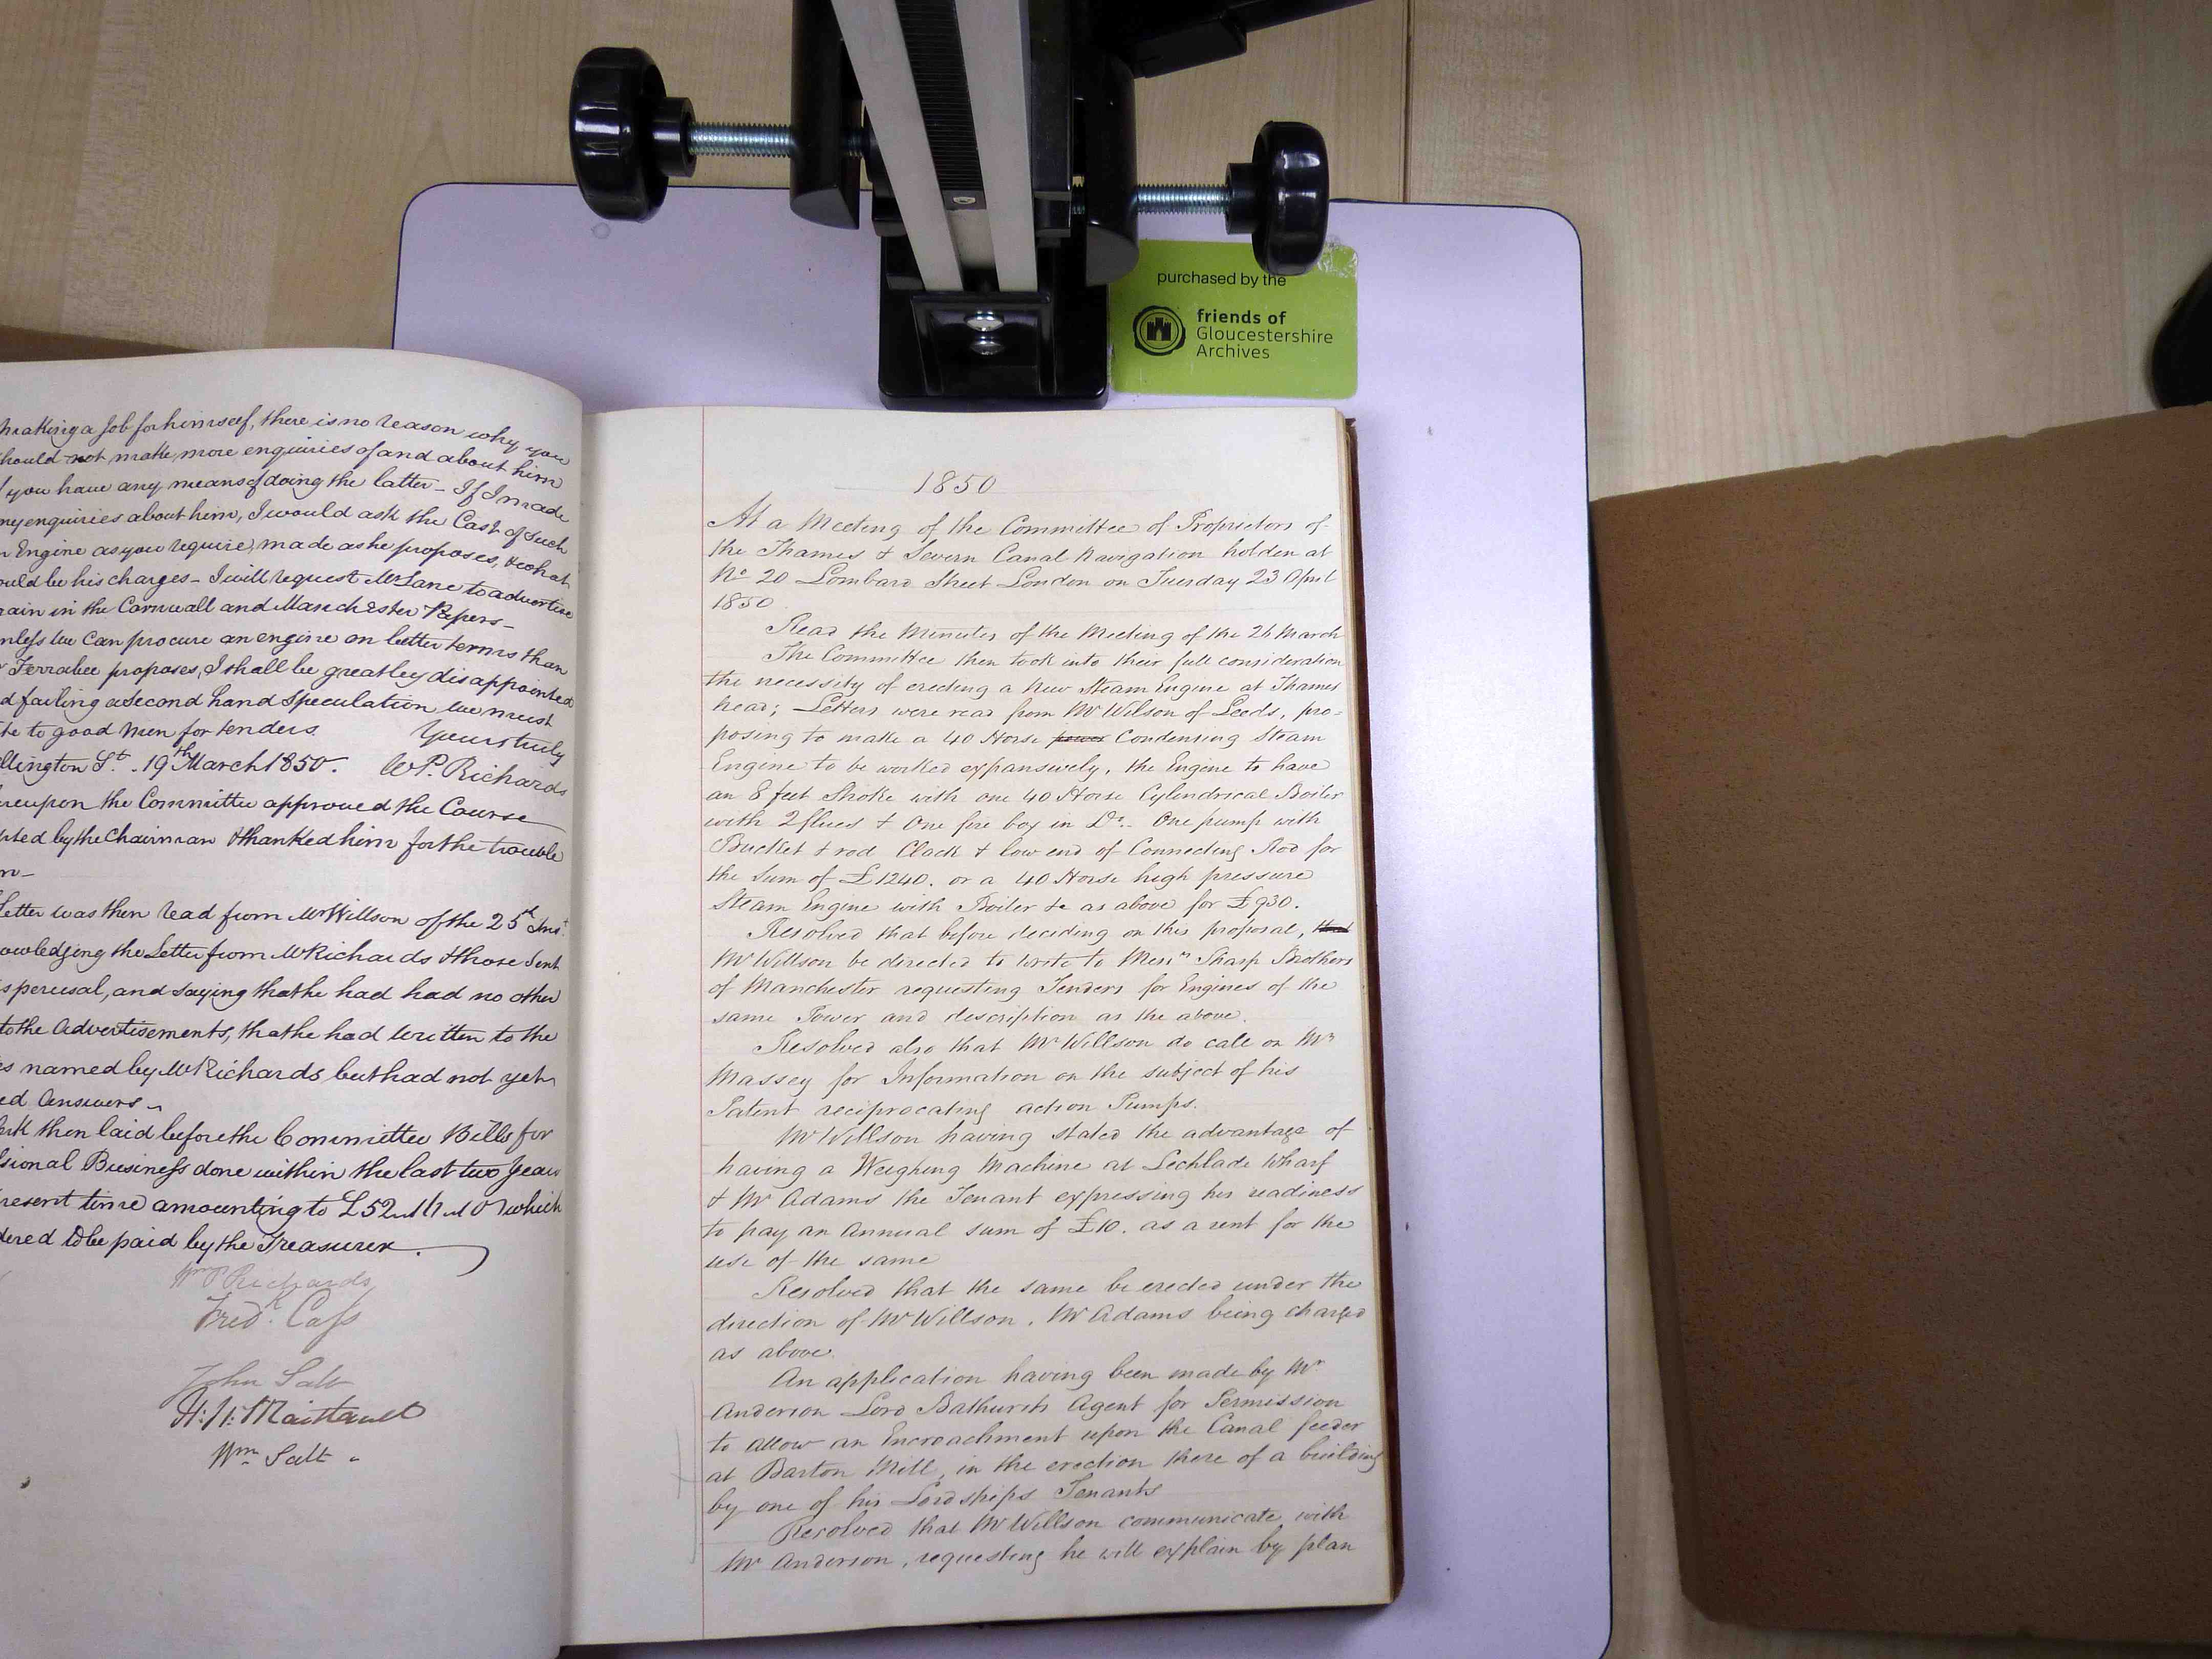 purchased by the
friends of
Gloucestershire
Archives
making a Job for himself, there is no reason why you
hould not make more enquiries of and about him
you have any means of doing the latter - If I made
my enquiries about him, I would ask the Cost of such
n Engine as you require, made as he proposes, & what
ould be his charges - I will request Mr Lane to advertise
ain in the Cornwall and Manchester Papers -
nless we can procure an engine on better terms than
Ferrabee proposes, I shall be greatley disappointed
d failing a second hand speculation we must
te to good men for tenders. Yours truly
llington St. 19th March 1850. W P. Richards
ereupon the Committee approved the Course
pted by the Chairman & thanked him for the trouble
n -
Letter was then read from Mr Willson of the 25th Inst.
owledging the Letter from Mr Richards & those sent
s perusal, and saying that he had had no other
to the Advertisements, that he had written to the
s named by Mr Richards but had not yet
ed Answers -
erk then laid before the Committee Bills for
sional Business done within the last two years
resent time amounting to £52 which
dered to be paid by the Treasurer.
Wm P Richards
Fredk. Cass
John Salt
Maitland
Wm Salt -
1850
At a Meeting of the Committee of Proprietors of
the Thames & Severn Canal Navigation holden at
No 20 Lombard Street London on Tuesday 23 April
1850
Read the Minutes of the Meeting of the 26 March
The Committee then took into their full consideration
the necessity of erecting a New Steam Engine at Thames
head; Letters were read from Mr Wilson of Leeds, pro-
posing to make a 40 Horse power Condensing Steam
Engine to be worked expansively, the Engine to have
an 8 feet Stroke with one 40 Horse Cylindrical Boiler
with 2 flues & One fire box in Do.. One pump with
Bucket & rod Clack & low end of Connecting Rod for
the Sum of £1240. or a 40 Horse high pressure
Steam Engine with Boiler &c as above for £930.
Resolved that before deciding on this proposal, that
Mr Willson be directed to write to Messrs Sharp Brothers
of Manchester requesting Tenders for Engines of the
same Power and description as the above.
Resolved also that Mr Willson do call on Mr
Massey for Information on the subject of his
Patent reciprocating action Pumps.
Mr Willson having stated the advantage of
having a Weighing Machine at Lechlade Wharf
& Mr Adams the Tenant expressing his readiness
to pay an Annual sum of £10. as a rent for the
use of the same
Resolved that the same be erected under the
direction of Mr Willson, Mr Adams being charged
as above.
An application having been made by Mr
Anderson Lord Bathursts Agent for Permission
to allow an Encroachment upon the Canal feeder
at Barton Mill, in the erection there of a building
by one of his Lordships Tenants
Resolved that Mr Willson communicate with
Mr Anderson, requesting he will explain by plan